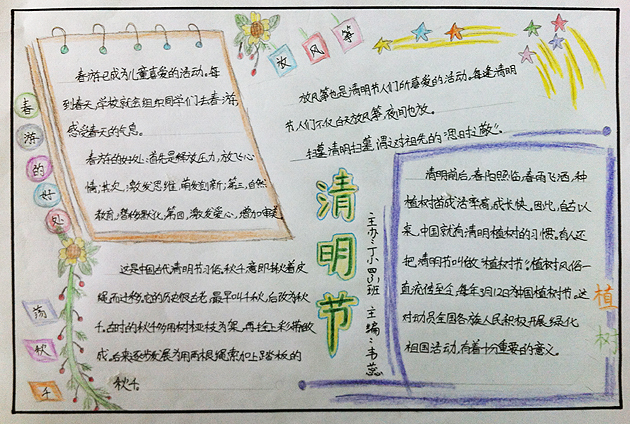 春游的好处
春游已成为儿童喜爱的活动。每
到春天,学校就会组织同学们去春游,
感受春天的气息。
春游的好处:首先是解放压力,放飞心
情;其次,激发思维,萌发创新;第三,自然
教育,潜移默化。第四,激发爱心,增加审美
放风筝
放风筝也是清明节人们所喜爱的活动。每逢清明
节人们不仅白天放风筝,夜间也放。
扫墓清明扫墓,谓之对祖先的“思时之敬”。
清明节
主办:丁小四班 主编:韦蕊
荡秋千
这是中国古代清明节习俗。秋千意即揪着皮
绳而迁移。它的历史很古老,最早叫千秋,后改为秋
千。古时的秋千多用树桠枝为架,再拴上彩带做
成。后来逐步发展为用两根绳索加上踏板的
秋千。
植树
清明前后,春阳照临,春雨飞洒,种
植树苗成活率高,成长快。因此,自古以
来,中国就有清明植树的习惯。有人还
把清明节叫做“植树节”。植树风俗一
直流传至今,每年3月12日为中国植树节。这
对动员全国各族人民积极开展绿化
祖国活动,有着十分重要的意义。